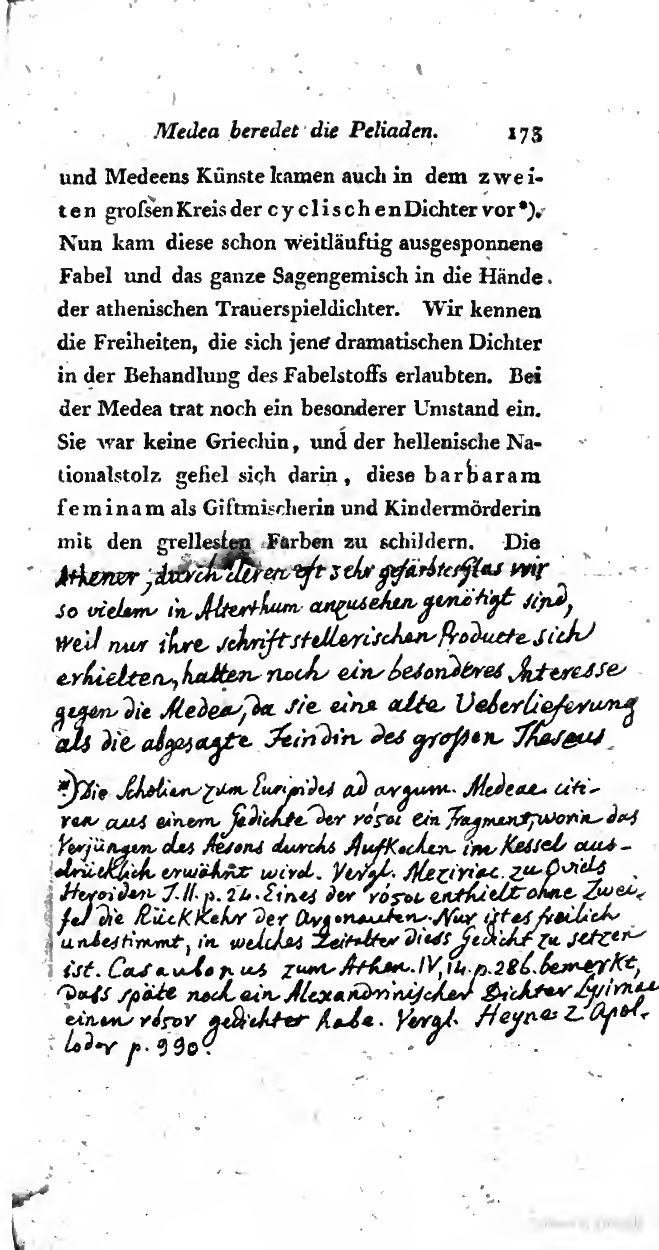 Medea beredet die Peliaden. 173
und Medeens Künste kamen auch in dem zwei-
ten großen Kreis der cyclischen Dichter vor*).
Nun kam diese schon weitläuftig ausgesponnene
Fabel und das ganze Sagengemisch in die Hände
der athenischen Trauerspieldichter. Wir kennen
die Freiheiten, die sich jene dramatischen Dichter
in der Behandlung des Fabelstoffs erlaubten. Bei
der Medea trat noch ein besonderer Umstand ein.
Sie war keine Griechin, und der hellenische Na-
tionalstolz gefiel sich darin, diese barbaram
feminam als Giftmischerin und Kindermörderin
mit den grellesten Farben zu schildern. Die
Athener, durch deren oft sehr gefärbtes Glas wir
so vielem in Alterthum anzusehen genötigt sind,
weil nur ihre schriftstellerischen Producte sich
erhielten, hatten noch ein besonderes Interesse
gegen die Medea, da sie eine alte Ueberlieferung
als die abgesagte Feindin des großen Theseus
*) Die Scholien zum Euripides ad argum. Medeae citi-
ren aus einem Gedichte der νόσοι ein Fragment, worin das
Verjüngen des Aesons durchs Aufkochen im Kessel aus-
drücklich erwähnt wird. Vergl. Meziriac. zu Ovids
Heroiden T. II. p. 24. Eines der νόσοι enthielt ohne Zwei-
fel die Rückkehr der Argonauten. Nur ist es freilich
unbestimmt, in welches Zeitalter diess Gedicht zu setzen
ist. Casaubonus zum Athen. IV, 14. p. 286. bemerkt,
Dass späte noch ein Alexandrinischer Dichter
einen νόσον gedichtet habe. Vergl. Heyne z. Apol-
lodor p. 990.